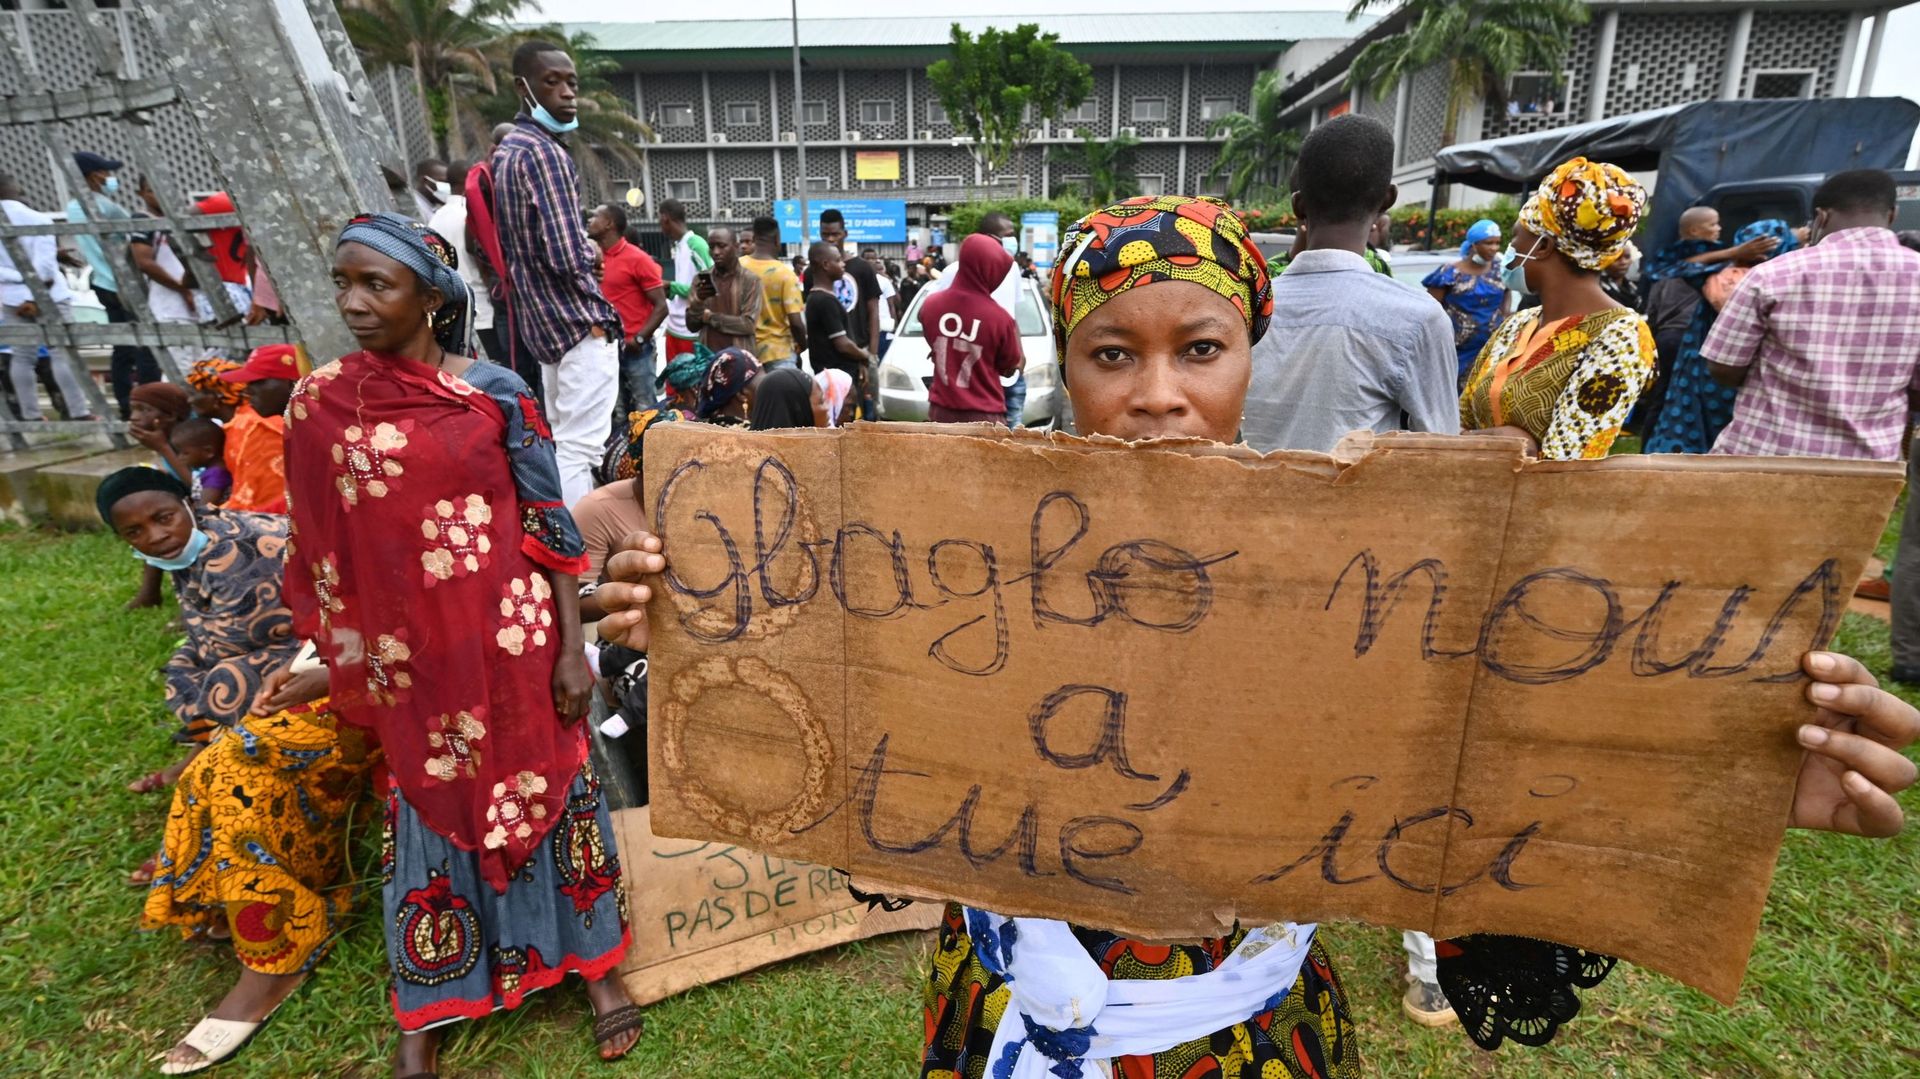 PALAIS DE JUSTICE D'ABIDJAN
OJ
17
Gbagbo nous
a
tué ici
PAS DE RE
TION